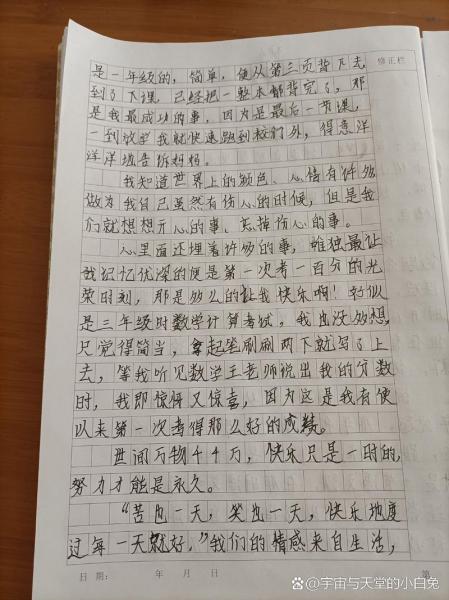 修正栏
是一年级的，简单，便从第三页背下去
到了下课，已经把一整本都背完了，那
是我最成功的事，因为是最后一节课，
一到放学我就快速跑到校门外，得意洋
洋地告诉妈妈。
我知道世界上的颜色、心情有许多
做为我自己虽然有伤心的时候，但是我
们就想想开心的事、忘掉伤心的事。
心里面还埋着许多的事，唯独最让
我记忆优深的便是第一次考一百分的光
荣时刻，那是多么的让我快乐啊！好似
是三年级时数学计算考试，我也没多想，
只觉得简当，拿起笔刷刷两下就写了上
去，等我听见数学王老师说出我的分数
时，我即惊讶又惊喜，因为这是我有使
以来第一次考得那么好的成绩。
世间万物千千万，快乐只是一时的，
努力才能是永久。
“苦也一天，笑也一天，快乐地度
过每一天就好，”我们的情感来自生活，
日期： 年 月 日 第
@宇宙与天堂的小白兔